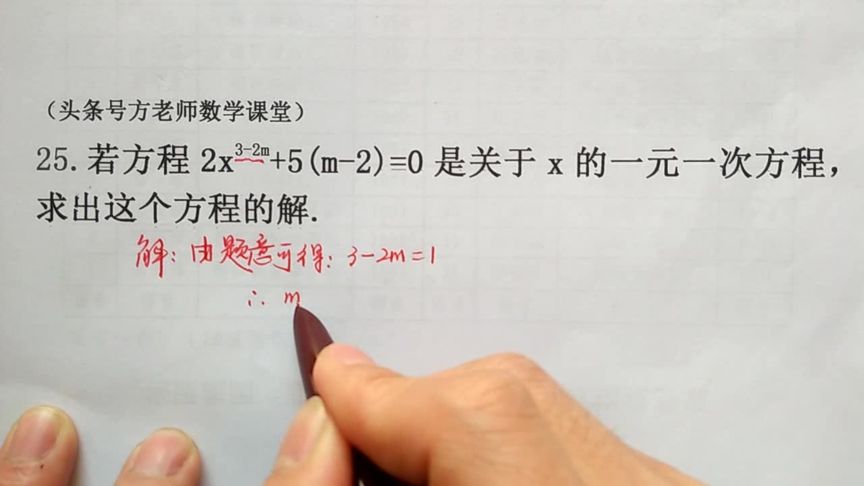 （头条号方老师数学课堂）
25.若方程 2x³⁻²ᵐ+5(m-2)=0 是关于 x 的一元一次方程，
求出这个方程的解.
解：由题意可得：3-2m=1
∴ m